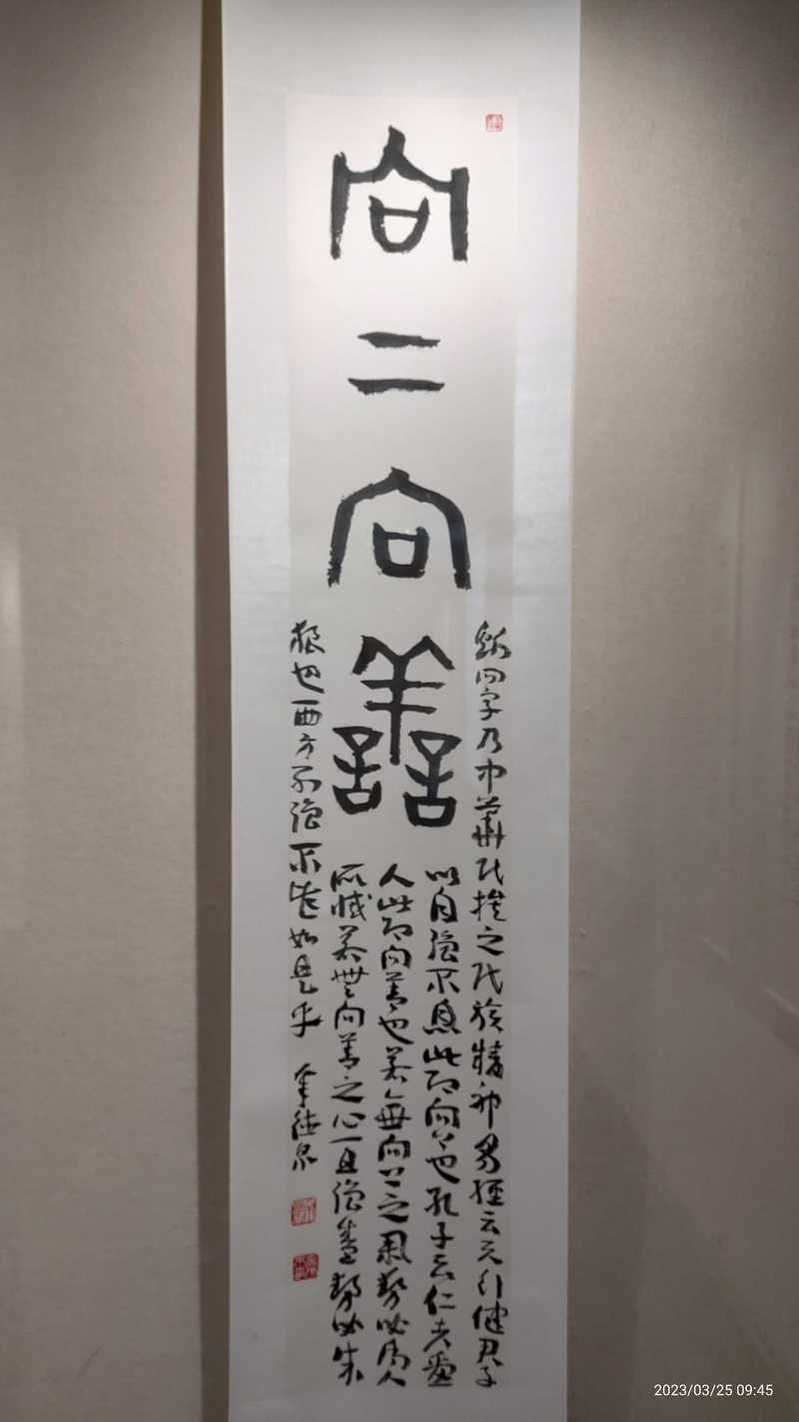 向上向善
斯四字乃中華民族之民族精神易經云天行健君子
以自強不息此即向上也孔子云仁者愛
人此即向善也若無向上之氣勢必為人
所滅若無向善之心一旦強盛勢必成
狼也西方列強不皆如是乎
2023/03/25 09:45